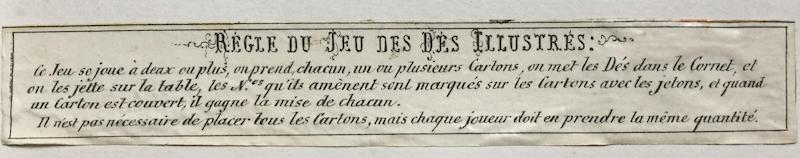 RÈGLE DU JEU DES DÉS ILLUSTRÉS:
Ce Jeu se joue à deax ou plus, on prend, chacun, un ou plusieurs Cartons, on met les Dés dans le Cornet, et
on les jette sur la table, les N.os qu'ils amènent sont marqués sur les Cartons avec les jetons, et quand
un Carton est couvert, il gagne la mise de chacun.
Il n'est pas nécessaire de placer tous les Cartons, mais chaque joueur doit en prendre la même quantité.